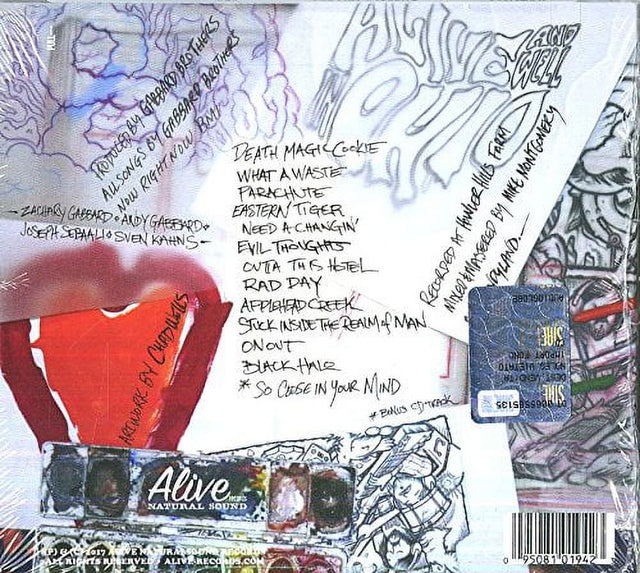 PRODUCED BY GABBARD BROTHERS
ALL SONGS BY GABBARD BROTHERS
NOW RIGHT NOW BMI
- ZACHARY GABBARD • ANDY GABBARD •
JOSEPH SEBAALI • SVEN KAHNS -
ALIVE AND WELL
IN OHIO
DEATH MAGIC COOKIE
WHAT A WASTE
PARACHUTE
EASTERN TIGER
NEED A CHANGIN'
EVIL THOUGHTS
OUTTA THIS HOTEL
RAD DAY
APPLEHEAD CREEK
STUCK INSIDE THE REALM of MAN
ON OUT
BLACK HOLE
* SO CLOSE IN YOUR MIND
* BONUS CD TRACK
RECORDED AT HOWLER HILLS FARM
MIXED & MASTERED BY MIKE MONTGOMERY
ARTWORK BY CHAD WELLS
SIAE
IMPORT FONO
NOLEG VIETATO
DEST. VENDITA
SIAE
Alive
NATURAL SOUND
(P) & (C) 2017 ALIVE NATURALSOUND RECORDS
ALL RIGHTS RESERVED / ALIVE-RECORDS.COM
0 95081 01942